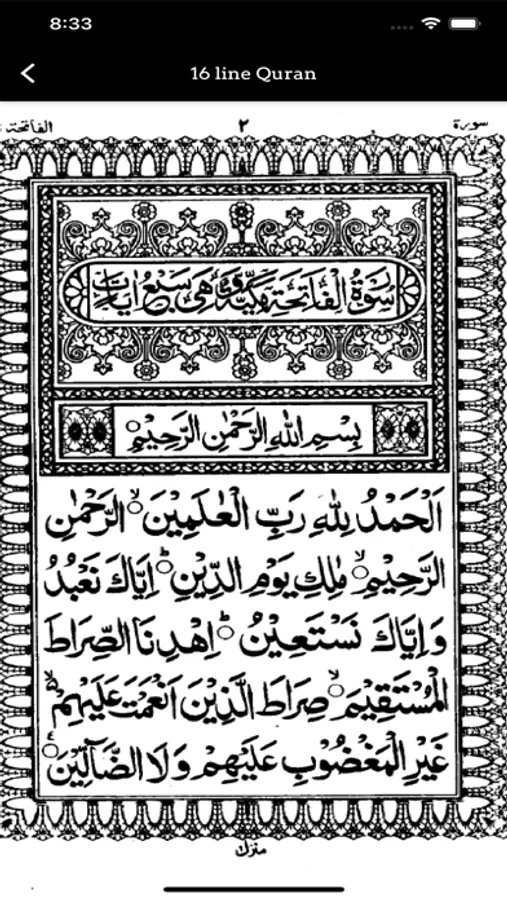 8:33
16 line Quran
سورة ٢ الفاتحة
سُوْرَةُ الْفَاتِحَةِ مَكِّيَّةٌ وَّهِيَ سَبْعُ اٰيَاتٍ
بِسْمِ اللّٰهِ الرَّحْمٰنِ الرَّحِيْمِ
اَلْحَمْدُ لِلّٰهِ رَبِّ الْعٰلَمِيْنَ ۙ الرَّحْمٰنِ
الرَّحِيْمِ ۙ مٰلِكِ يَوْمِ الدِّيْنِ ؕ اِيَّاكَ نَعْبُدُ
وَاِيَّاكَ نَسْتَعِيْنُ ؕ اِهْدِنَا الصِّرَاطَ
الْمُسْتَقِيْمَ ۙ صِرَاطَ الَّذِيْنَ اَنْعَمْتَ عَلَيْهِمْ ۙ
غَيْرِ الْمَغْضُوْبِ عَلَيْهِمْ وَلَا الضَّآلِّيْنَ
منزل